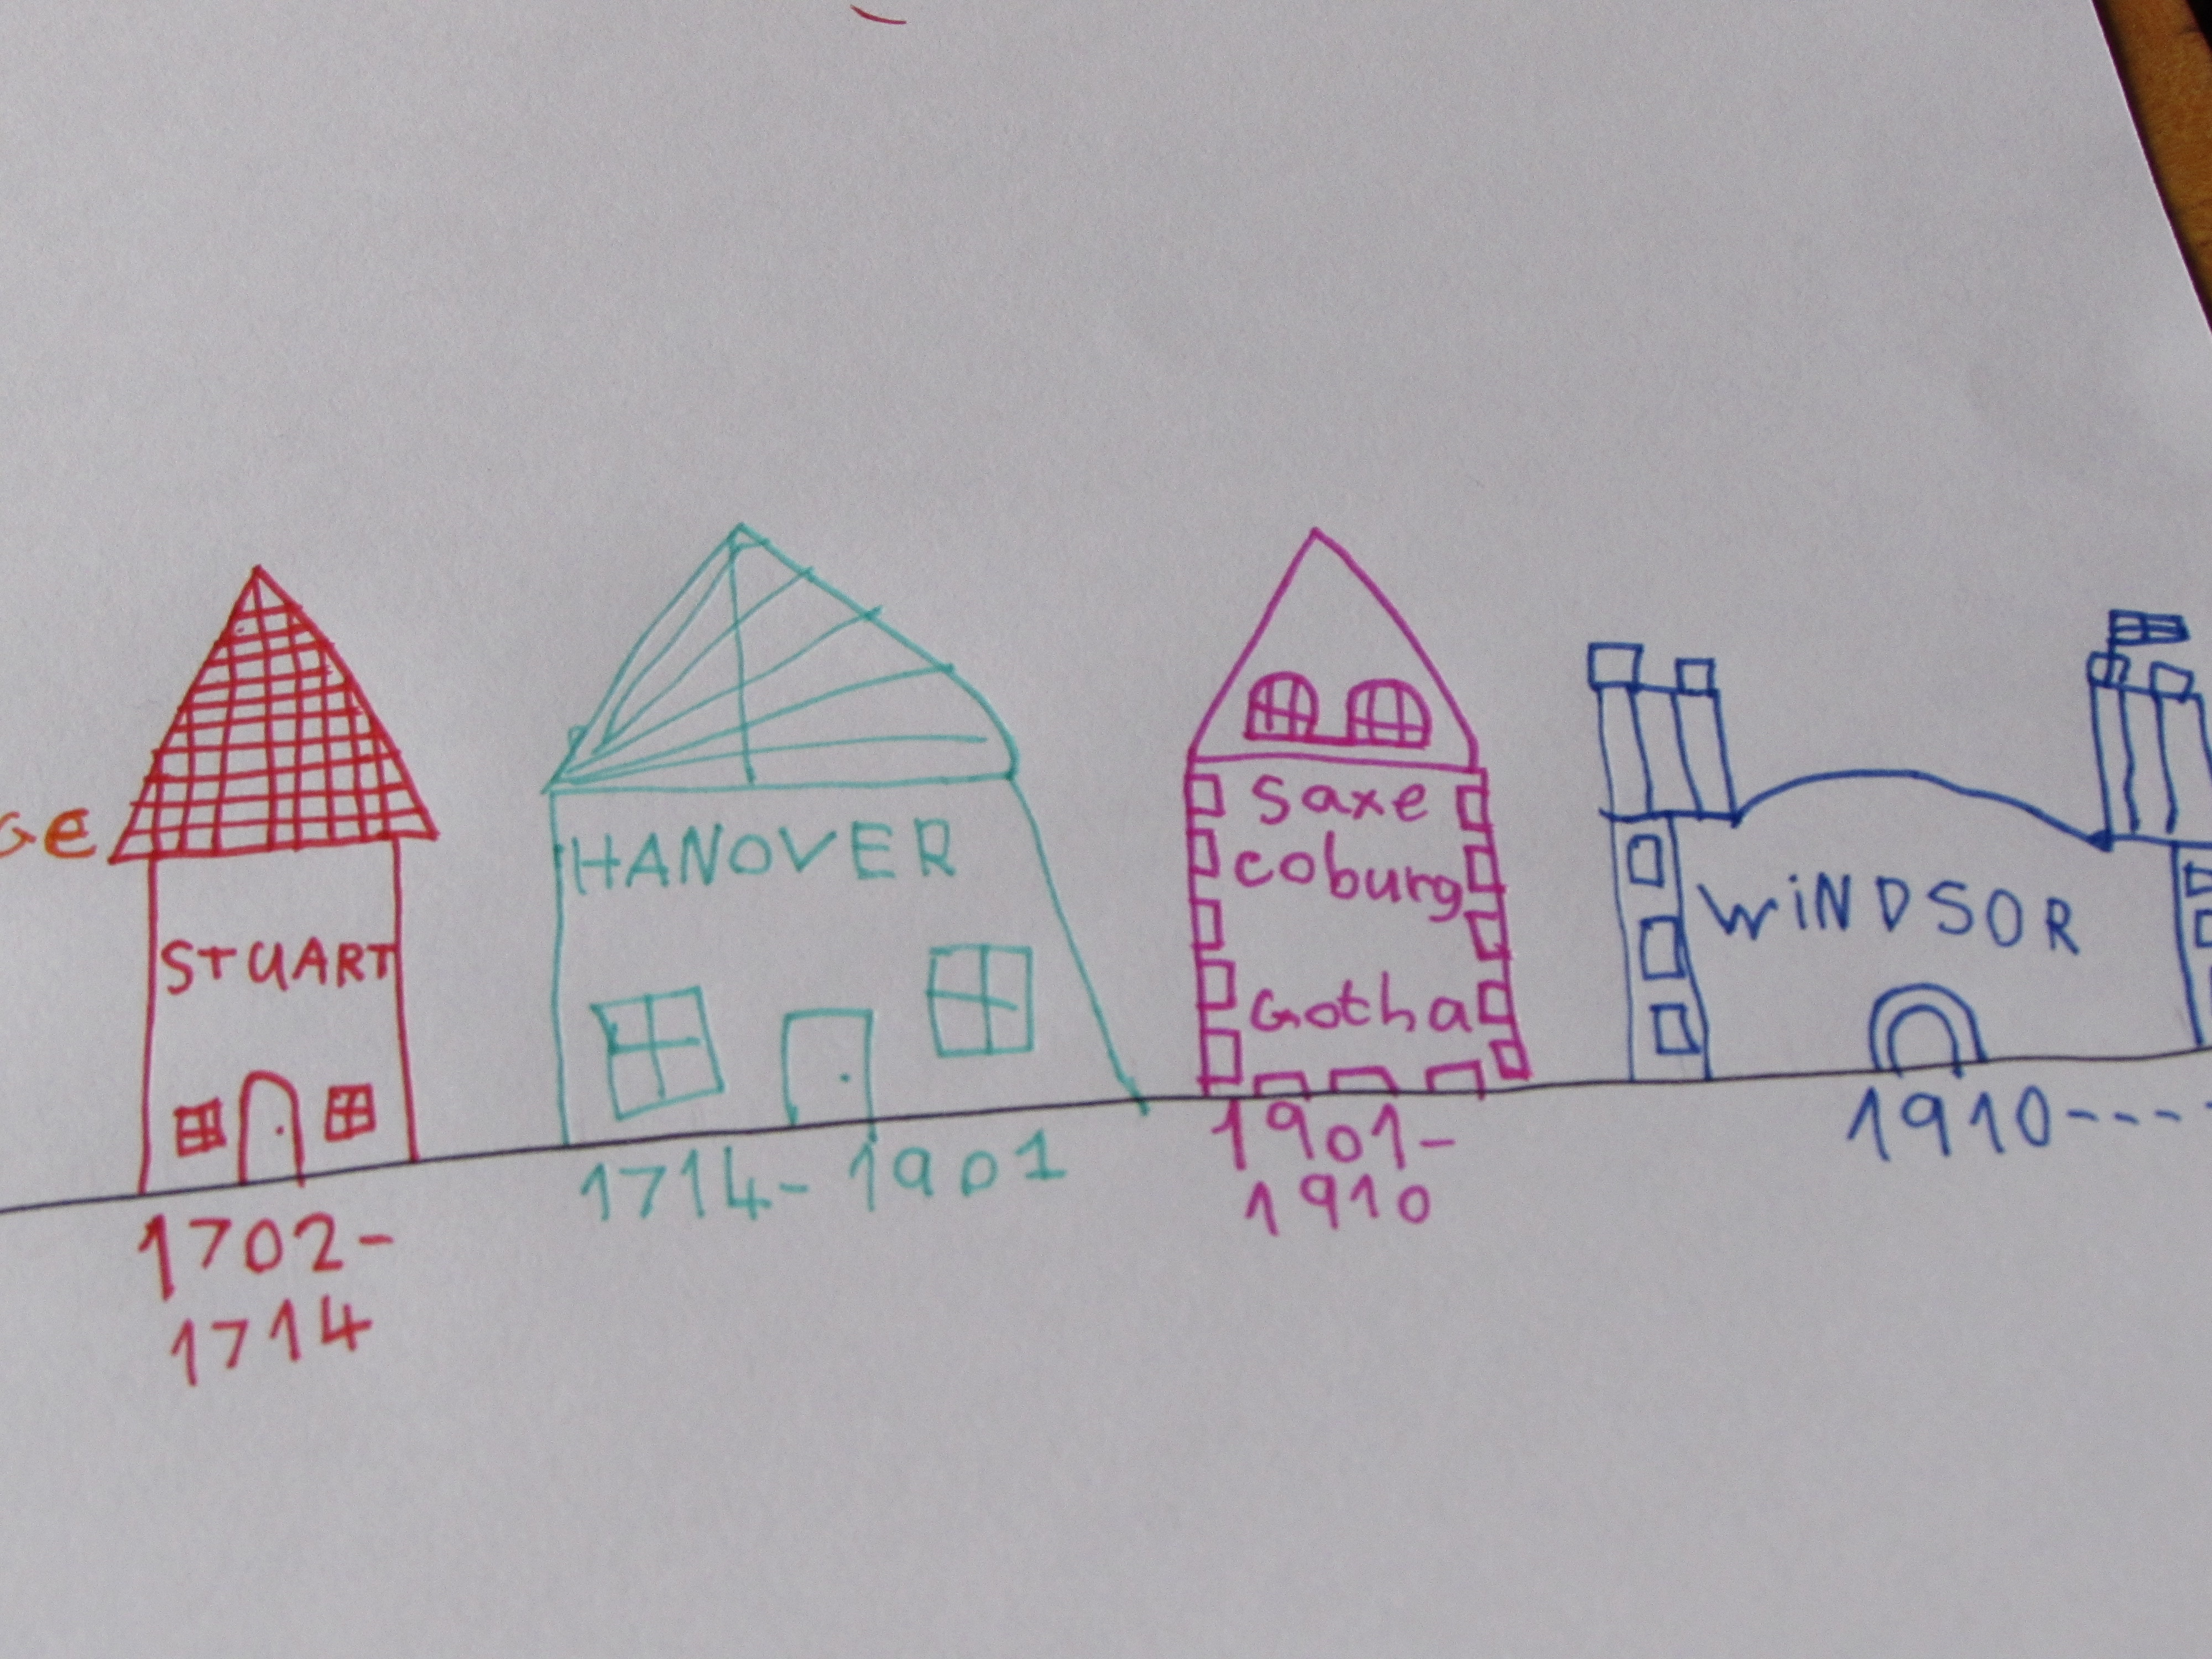 GE
STUART
1702-
1714
HANOVER
1714-1901
Saxe
coburg
Gotha
1901-
1910
WiNDSOR
1910----